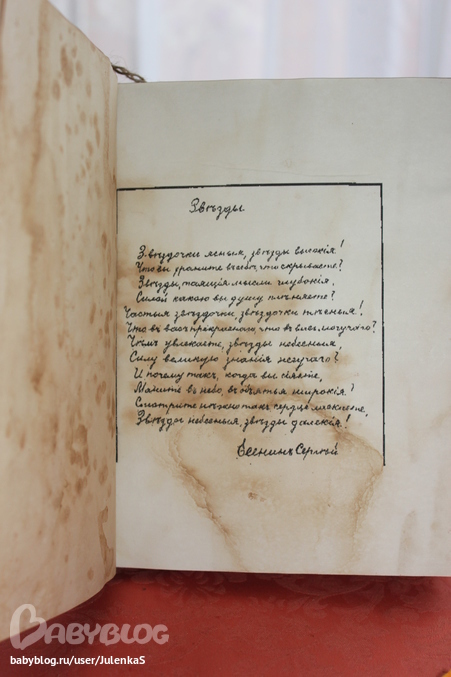 Звѣзды
Звѣздочки ясныя, звѣзды высокія!
Что вы храните въ себѣ, что скрываете?
Звѣзды, таящія мысли глубокія,
Силой какою вы душу плѣняете?
Частыя звѣздочки, звѣздочки тѣсныя!
Что въ васъ прекраснаго, что въ васъ могучаго?
Чѣмъ увлекаете, звѣзды небесныя,
Силу великую знанія жгучаго?
И почему такъ, когда вы сіяете,
Маните въ небо, въ объятья широкія?
Смотрите нѣжно такъ, сердце ласкаете,
Звѣзды небесныя, звѣзды далекія!
Есенинъ Сергѣй
BABYBLOG
babyblog.ru/user/JulenkaS